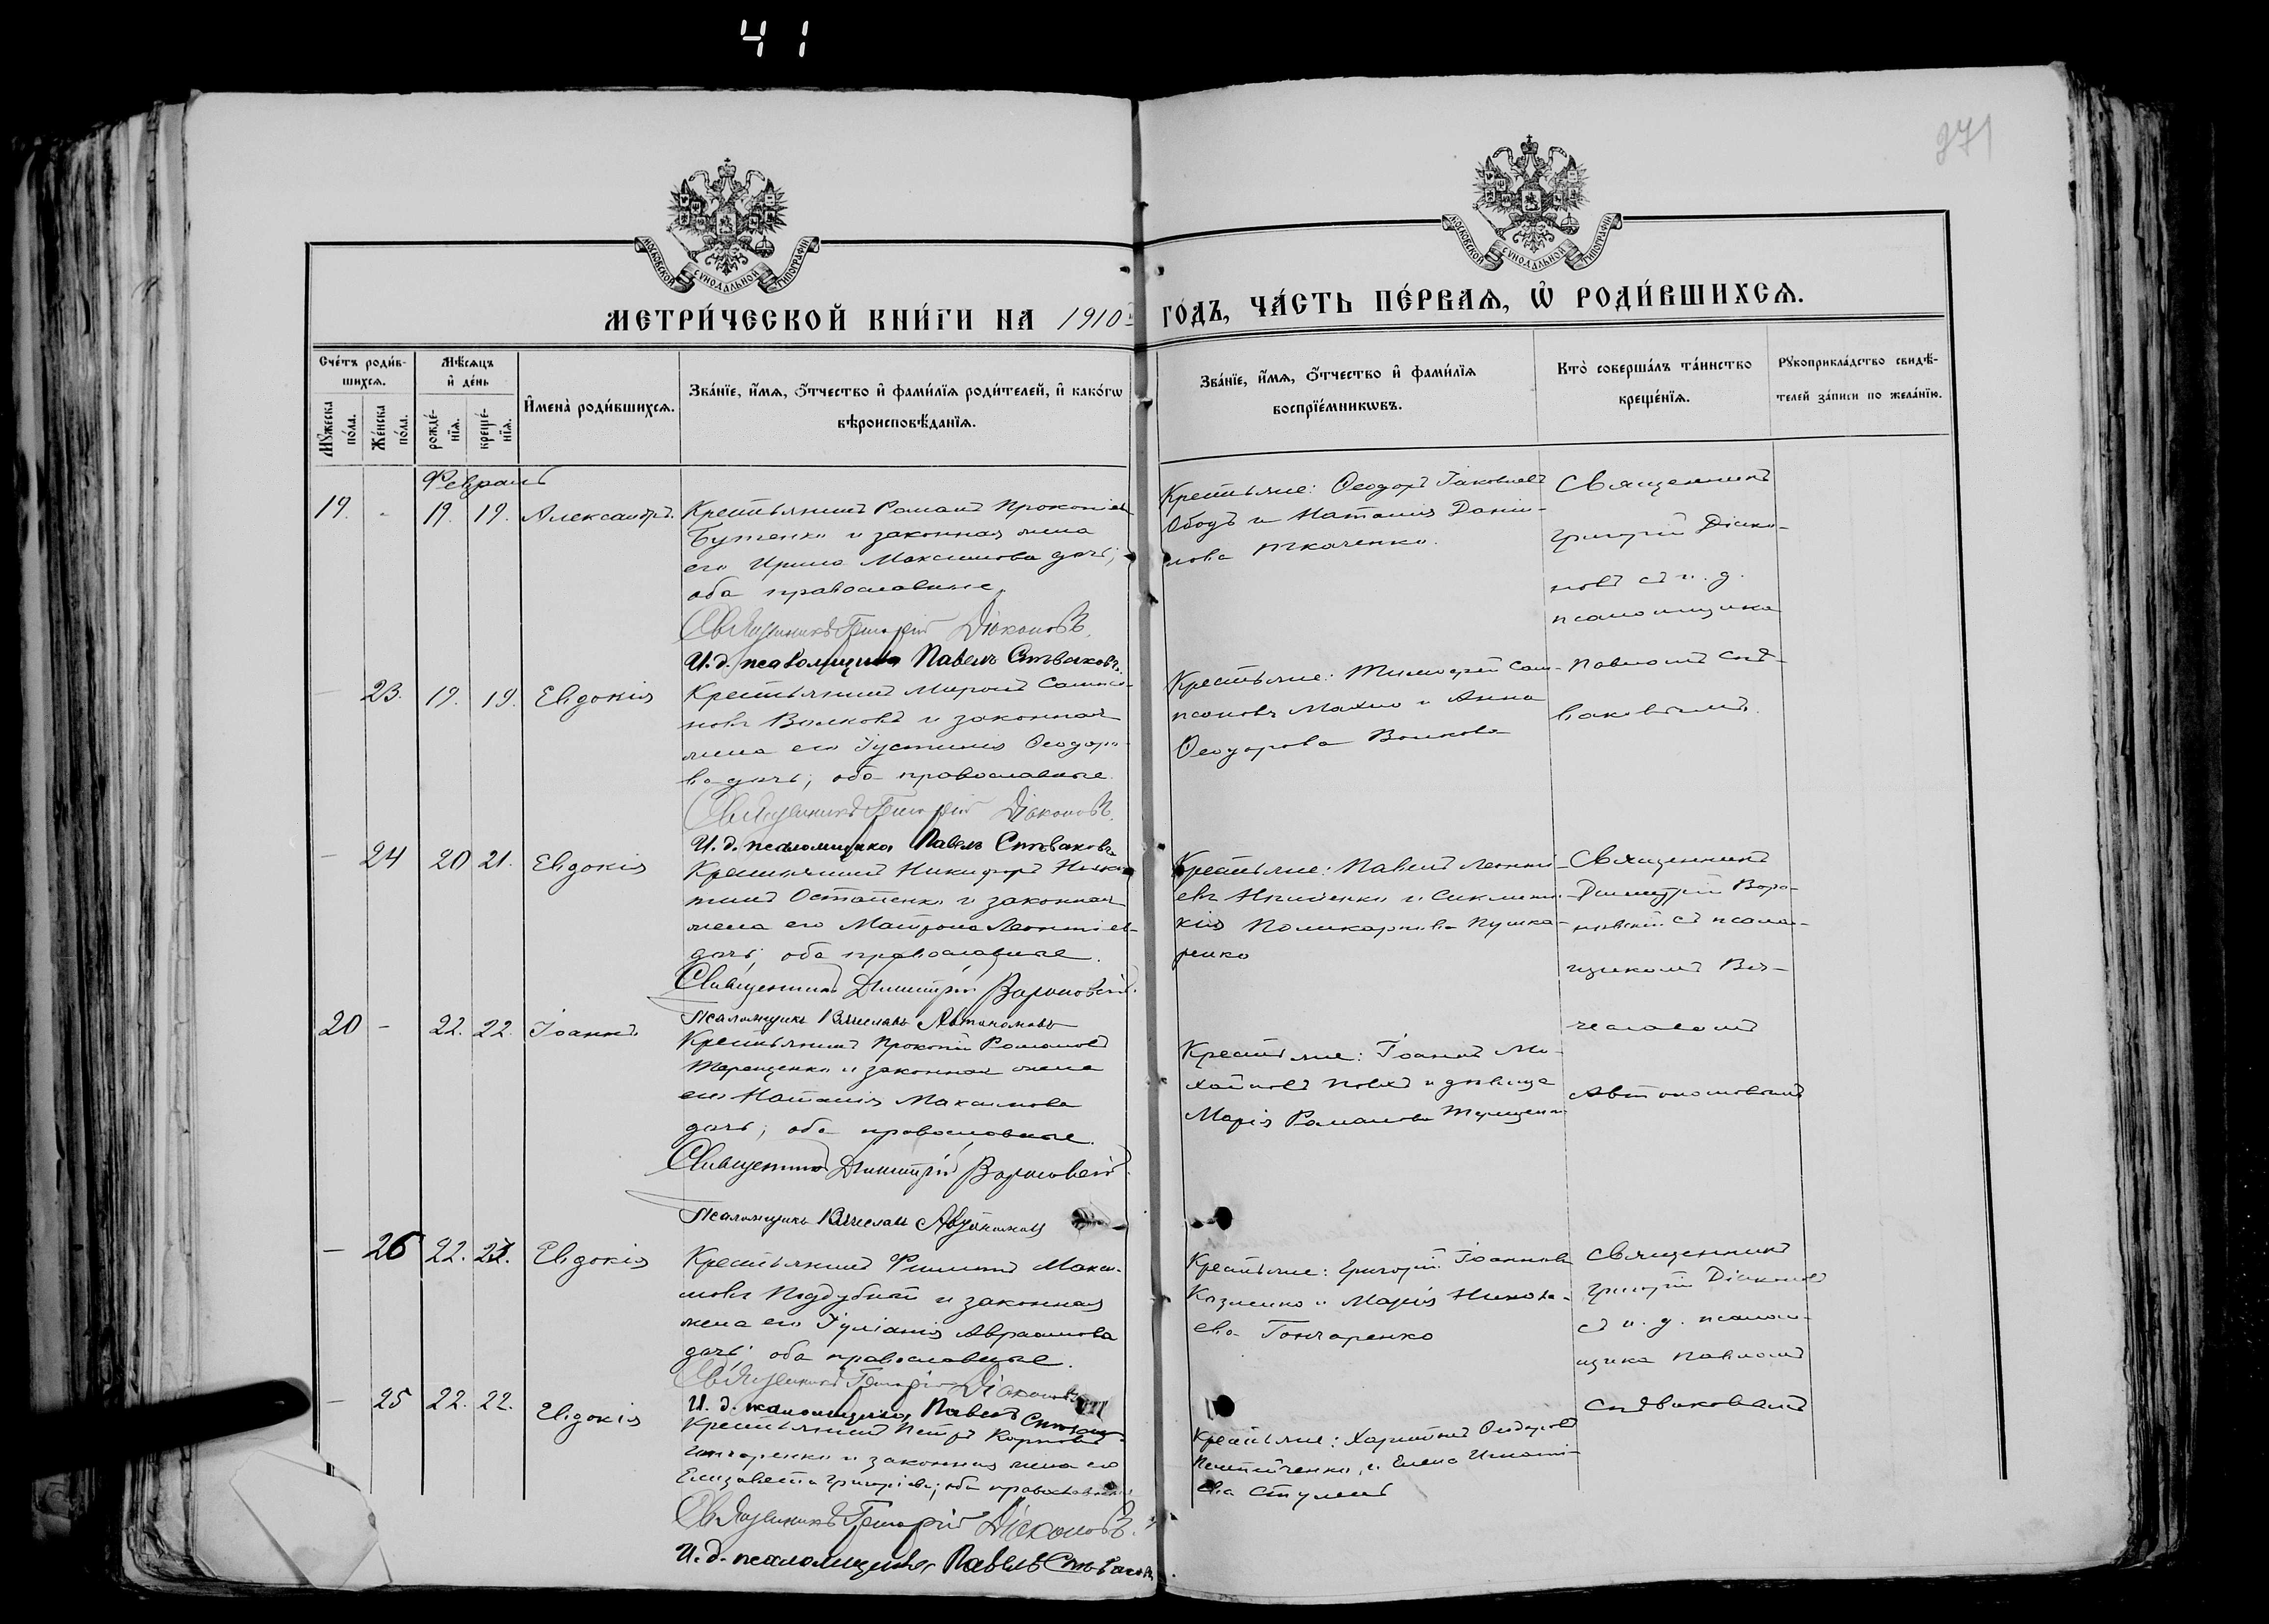 41
271
МОСКОВСКОЙ СѴНОДАЛЬНОЙ ТИПОГРАФІИ
МОСКОВСКОЙ СѴНОДАЛЬНОЙ ТИПОГРАФІИ
МЕТРИ́ЧЕСКОЙ КНИ́ГИ НА 1910 ГО́ДЪ, ЧА́СТЬ ПЕ́РВАѦ, Ѡ РОДИ́ВШИХСѦ.
Сче́тъ роди́в-
шихсѧ.
Мѣ́сѧцъ
и҆ де́нь
Мꙋ́жеска по́ла.
Же́нска по́ла.
рожде́-
нїѧ.
креще́-
нїѧ.
И҆мена̀ роди́вшихсѧ.
Зва́нїе, и҆́мѧ, ѻ҆́тчество и҆ фами́лїѧ роди́телей, и҆ како́гѡ
вѣроисповѣ́данїѧ.
Зва́нїе, и҆́мѧ, ѻ҆́тчество и҆ фами́лїѧ
воспрїе́мникѡвъ.
Кто̀ соверша́лъ та́инство
креще́нїѧ.
Рꙋкоприкла́дство свидѣ́-
телей за́писи по жела́нїю.
Февраль
19. - 19. 19. Александръ.
Крестьянинъ Романъ Прокопіевъ
Бутенко и законная жена
его Ирина Максимова дочь;
оба православные.
Священникъ Григорій Діаконовъ.
И. д. псаломщика Павелъ Спѣваковъ.
Крестьяне: Ѳеодоръ Іаковлевъ
Ободъ и Наталія Даніи-
лова Ткаченко.
Священникъ
Григорій Діако-
новъ съ и. д.
псаломщика
Павломъ Спѣ-
ваковымъ.
— 23. 19. 19. Евдокія
Крестьянинъ Миронъ Сампсо-
новъ Волковъ и законная
жена его Іустинія Ѳеодоро-
ва дочь; оба православные.
Священникъ Григорій Діаконовъ.
И. д. псаломщика Павелъ Спѣваковъ.
Крестьяне: Тимоѳей Сам-
псоновъ Махно и Анна
Ѳеодорова Волкова
— 24 20 21. Евдокія
Крестьянинъ Никифоръ Ники-
тинъ Остапенко и законная
жена его Матрона Леонтіев
дочь; оба православные.
Священникъ Димитрій Вороновскій.
Псаломщикъ Вячеславъ Автономовъ
Крестьяне: Павелъ Леонті-
евъ и
кія Поликарпова Пушка-
ренко
Священникъ
Димитрій Воро-
новскій съ псалом-
щикомъ Вя-
чеславомъ
Автономовымъ
20 - 22. 22. Іоаннъ
Крестьянинъ Прокопій Романовъ
Терещенко и законная жена
его Наталія Максимова
дочь; оба православные.
Священникъ Димитрій Вороновскій.
Псаломщикъ Вячеславъ Автономовъ
Крестьяне: Іоаннъ Ми-
хайловъ и дѣвица
Марія Романова Терещенко
— 26 22. 23. Евдокія
Крестьянинъ Филиппъ Макси-
мовъ Поддубный и законная
жена его Іуліанія Авраамова
дочь; оба православные.
Священникъ Григорій Діаконовъ
И. д. псаломщика Павелъ Спѣваковъ
Крестьяне: Григорій Іоанновъ
Козленко и Марія Никола-
ева Гончаренко
Священникъ
Григорій Діаконовъ
съ и. д. псалом-
щика Павломъ
Спѣваковымъ
— 25 22. 22. Евдокія
Крестьянинъ Петръ Карповъ
и законная жена его
Елизавета Григоріева; оба православные
Священникъ Григорій Діаконовъ.
И. д. псаломщика Павелъ Спѣваковъ.
Крестьяне: Харитонъ
и Елена Игнать-
ева